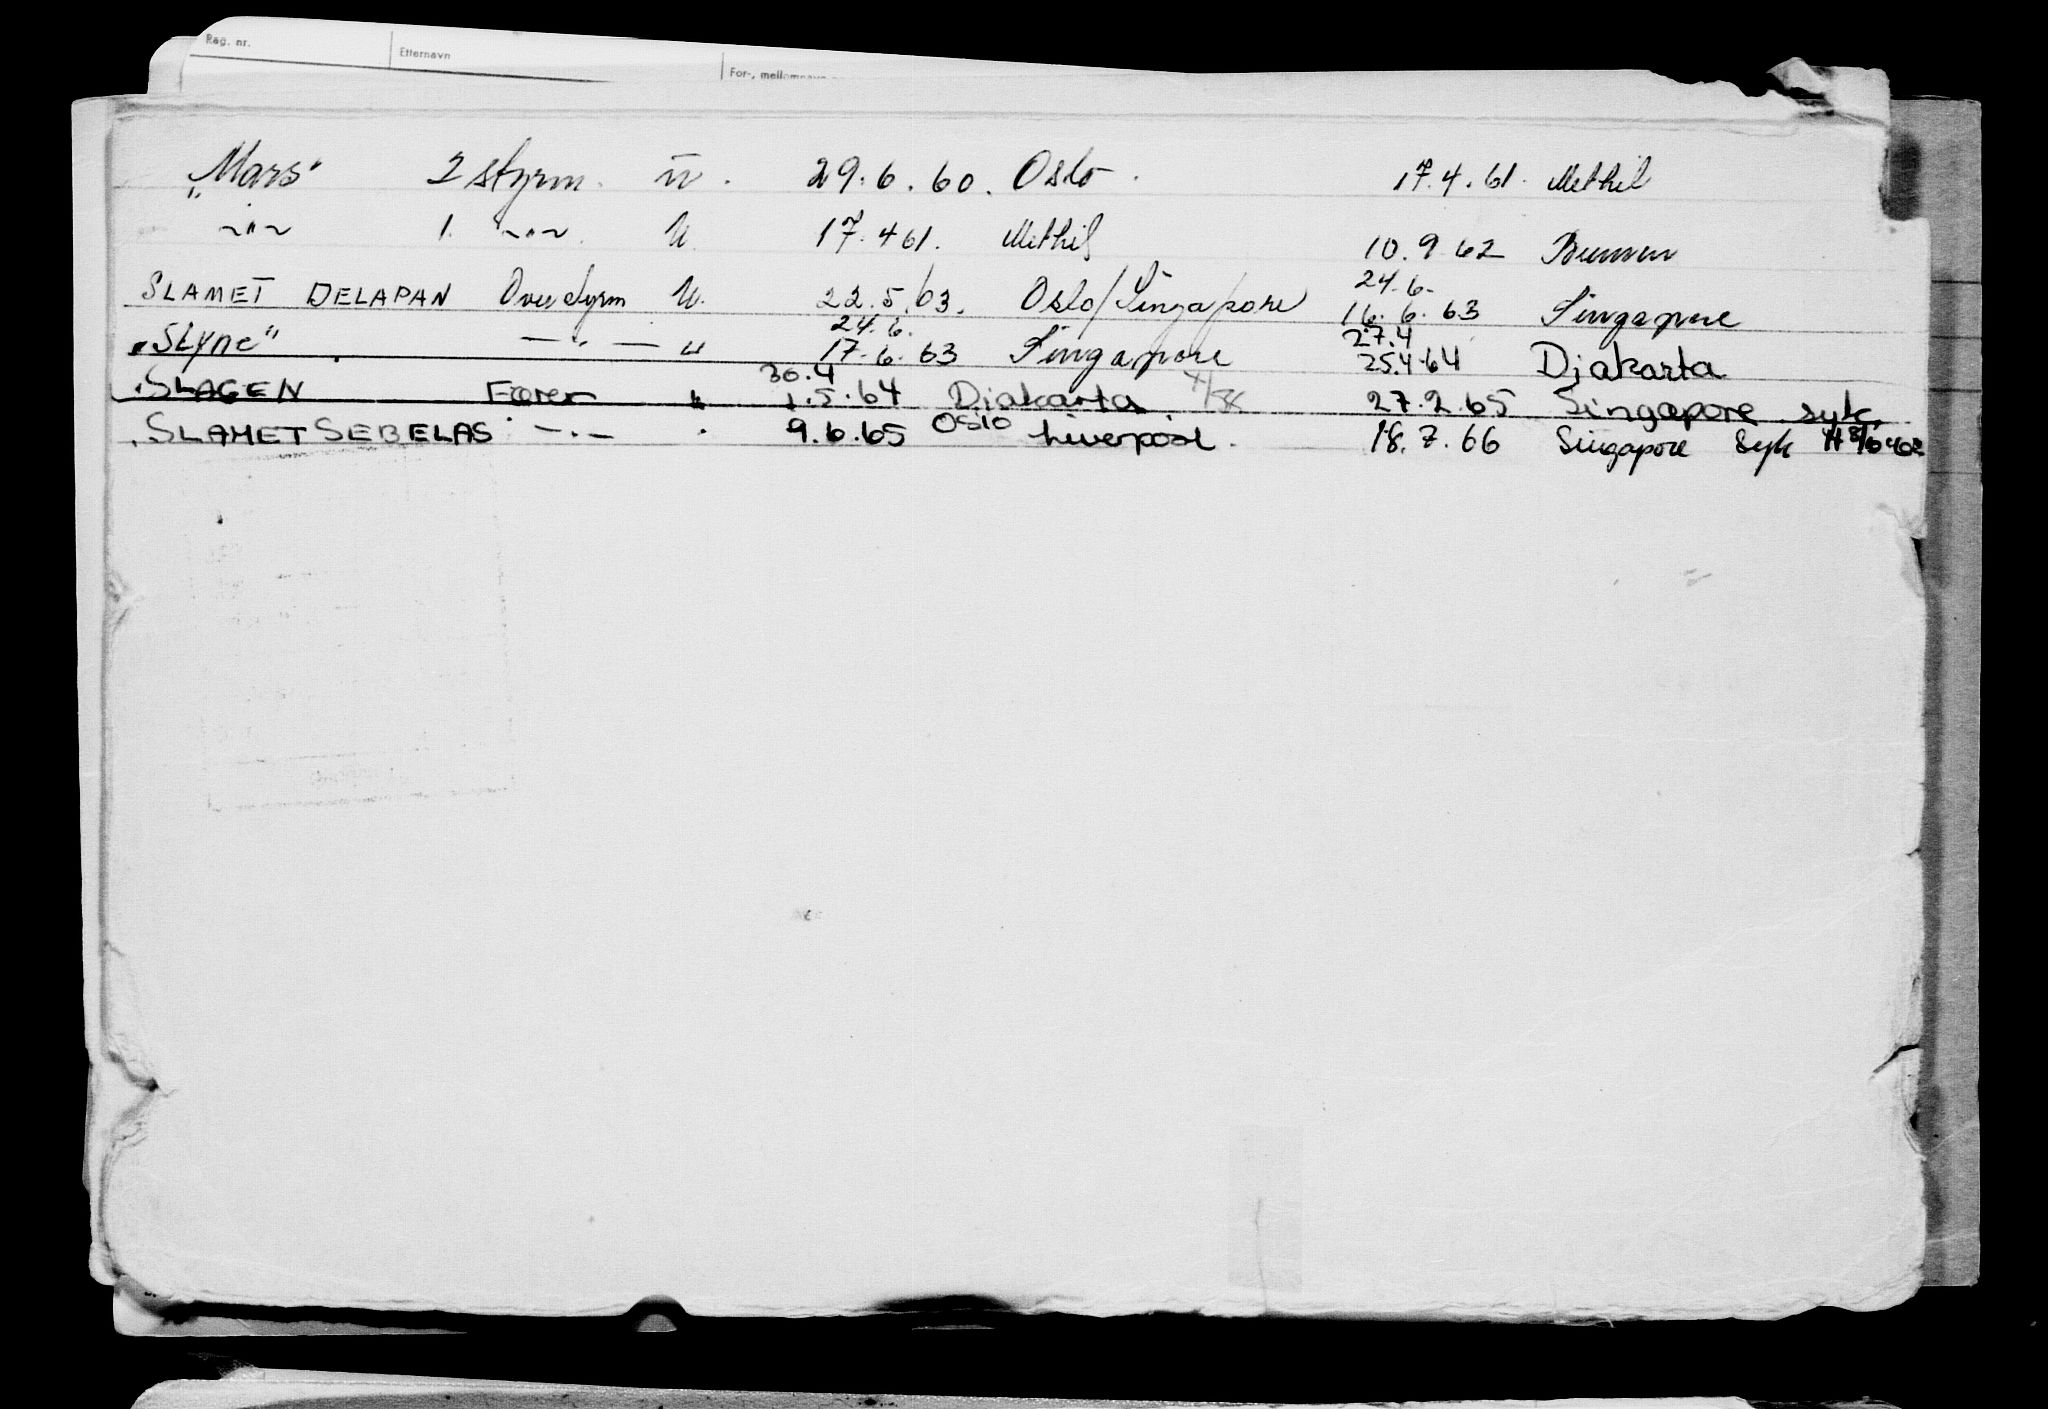 Reg. nr. Etternavn For-, mellomnavn
"Mars" 2 styrm. u. 29.6.60. Oslo. 17.4.61. Methil
~"~ 1. ~"~ u. 17.4 61. Methil 10.9.62 Bremen
24.6.
SLAMET DELAPAN Overstyrm u. 22.5.63. Oslo/Singapore 16.6.63 Singapore
24.6. 27.4
"Slyne" — " — " 17.6.63 Singapore 25.4.64 Djakarta
30.4
"SLAGEN Fører " 1.5.64 Djakarta 27.2.65 Singapore syk.
"SLAMET SEBELAS —.— " 9.6.65 Oslo Liverpool. 18.7.66 Singapore syk